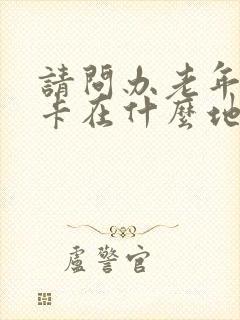 請問办老年
卡在什麼地
盧警官